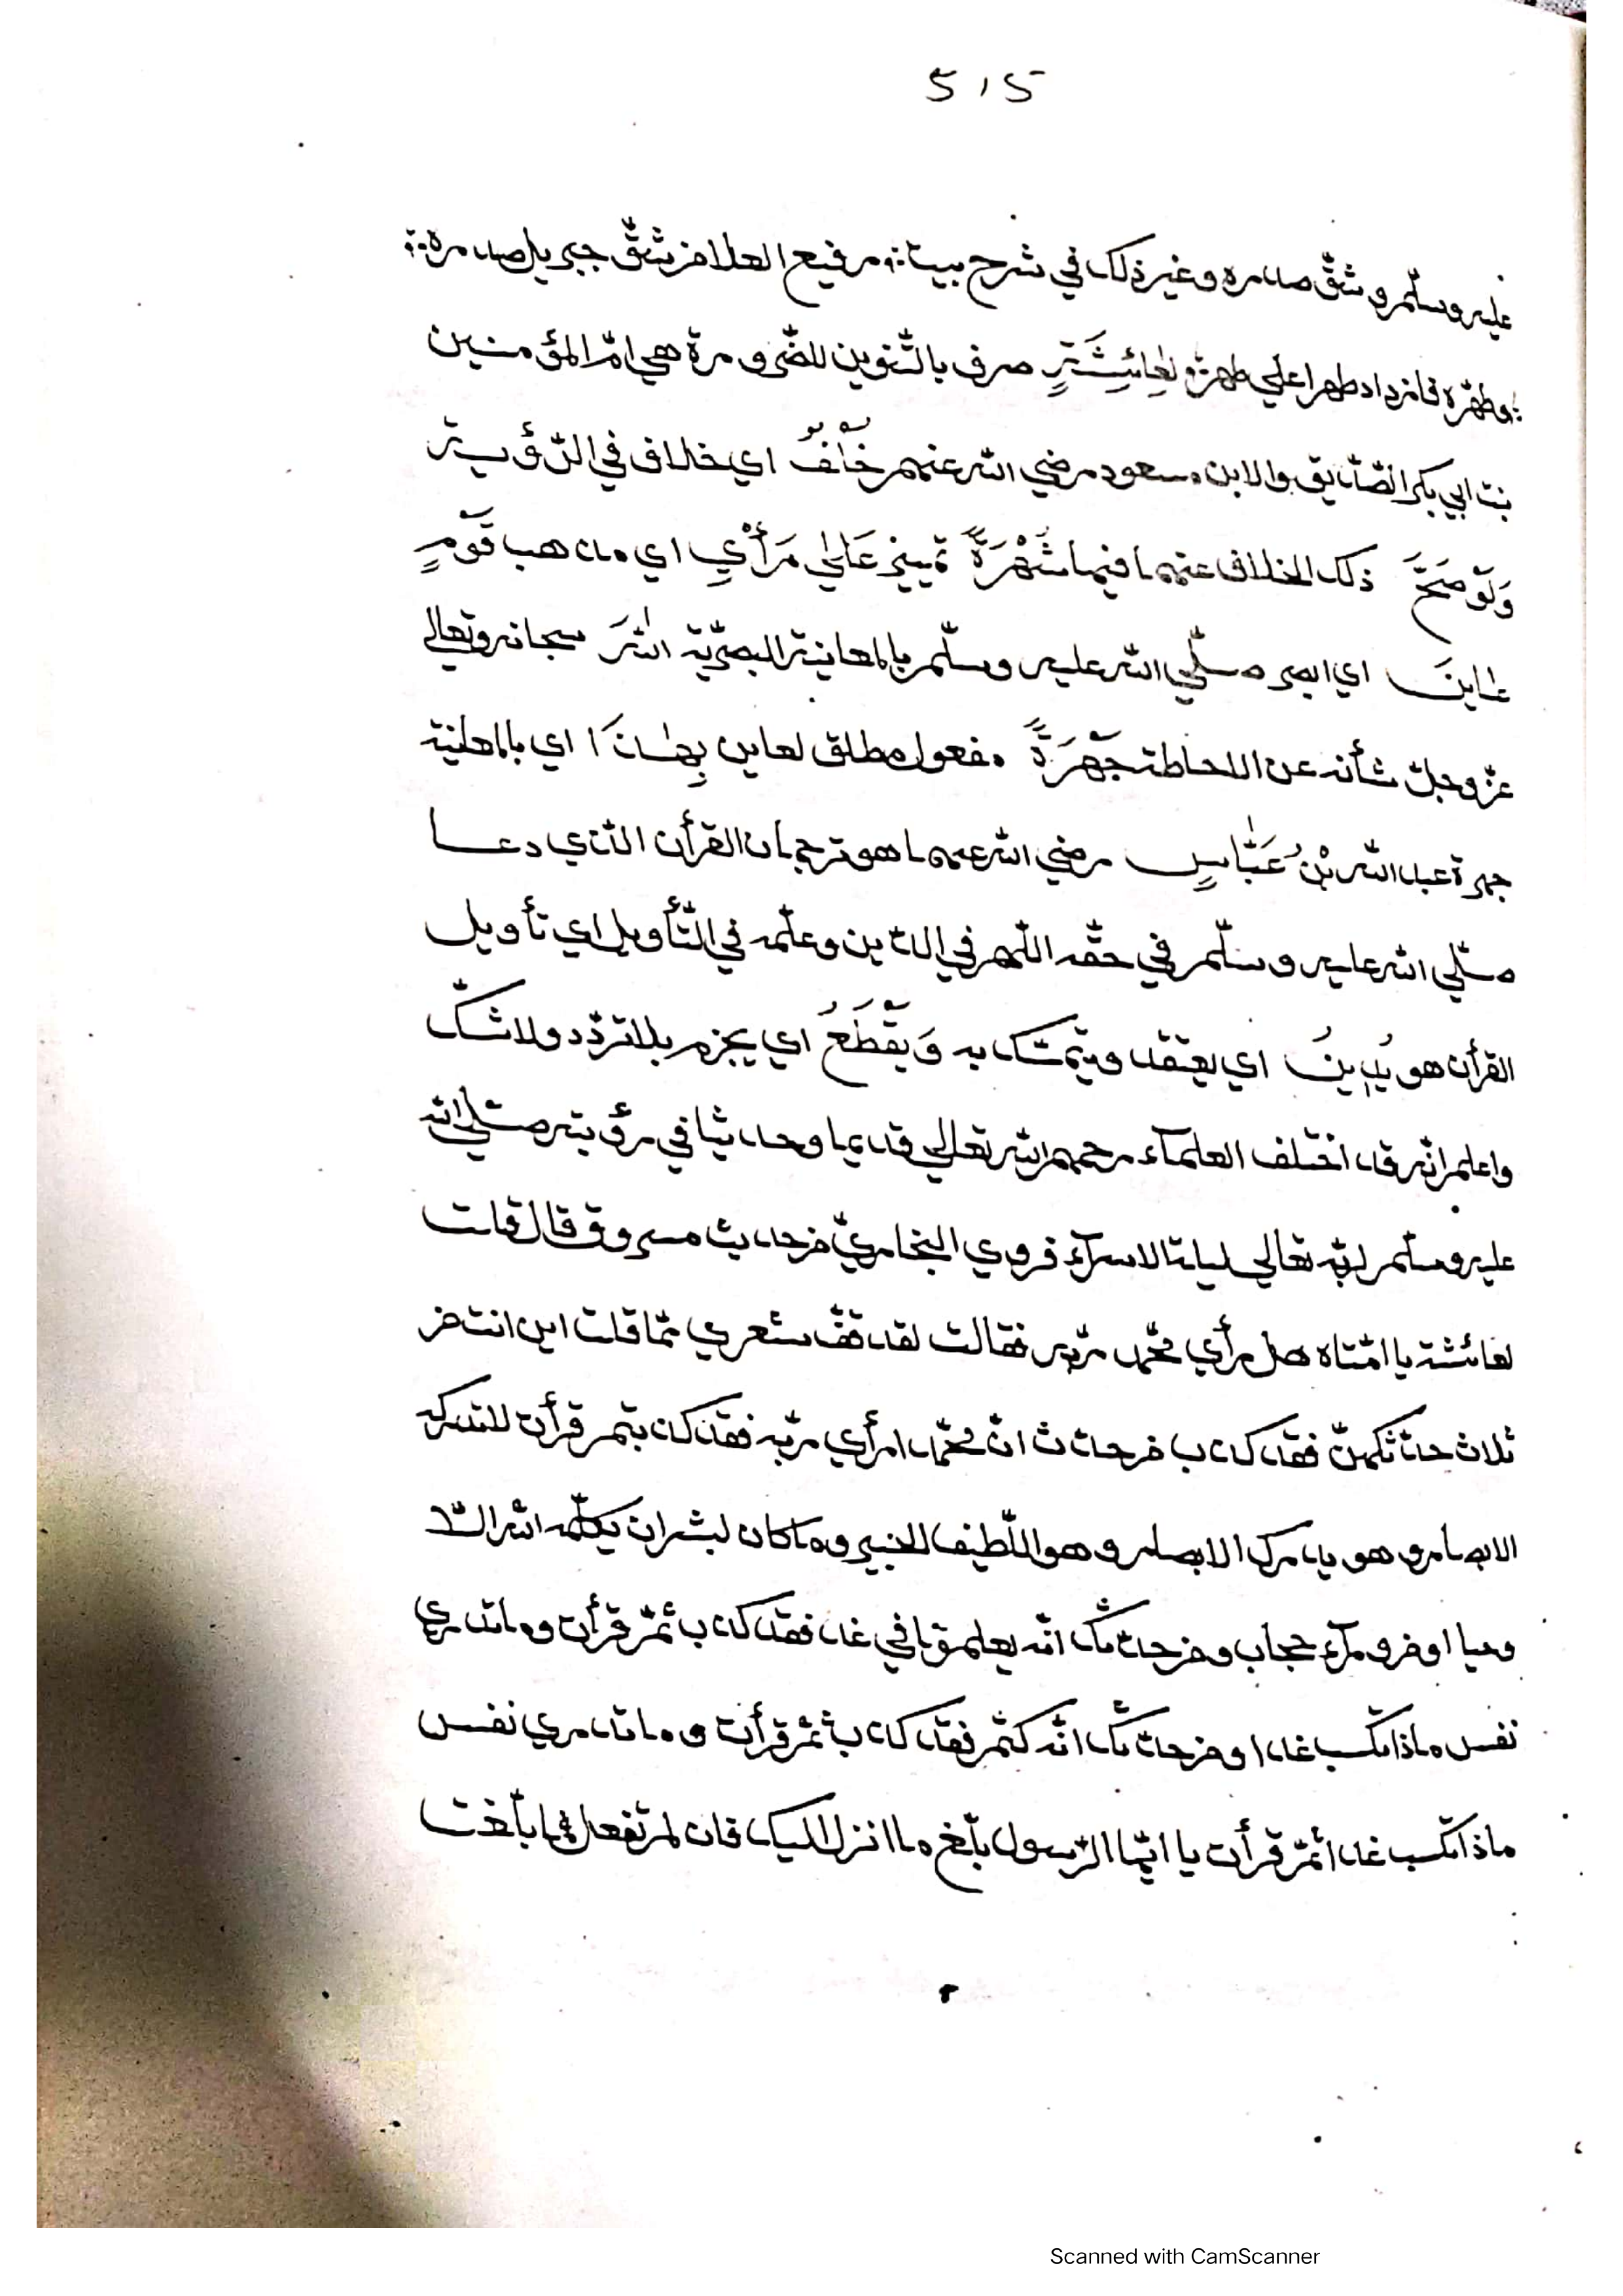 515
عليه وسلّم وشقّ صدره وغير ذلك في شرح بيت؞ رفيع العلا من شقّ جبريل صدره؞
؞وطهّره فازداد طهرا علي طهرة؞ لِعَائِشَةٍ صرف بالتّنوين للضّرورة هي امّ المؤمنين
بنت ابي بكر الصّدّيق والابن مسعود رضي الله عنهم خُلْفٌ اي خلاف في الرّؤية
وَلَوْ صَحَّ ذلك الخلاف عنهما فيما شُهْرَةً تمييز عَلٰي رَأْيِ اي مذهب قَوْمٍ
عٰايَنَ اي ابصر صلّي الله عليه وسلّم بالمعاينة البصريّة اللهَ سبحانه وتعالي
عزّ وجلّ شأنه عن الاحاطة جَهْرَةً مفعول مطلق لعاين بِهٰذَا اي بالمعاينة
جهرة عبد الله بْنُ عَبّٰاسٍ رضي الله عنهما هو ترجمان القرأن الّذي دعا
صلّي الله عليه وسلّم في حقّه اللّهم في الدّين وعلّمه في التّأويل اي تأويل
القرأن هو يَدِينُ اي يعتقد ويتمسّك به وَيَقْطَعُ اي يجزم بلا تردّد ولا شكّ
واعلم انّه قد اختلف العلمآء رحمهم الله تعالي قديما وحديثا في رؤيته صلّي الله
عليه وسلّم لربّه تعالي ليلة الاسرآء فروي البخاريّ من حديث مسروق قال قلت
لعائشة يا امّتاه هل رأي محمّد ربّه فقالت لقد قفّ شعري ممّا قلت اين انت من
ثلاث حدّثكهنّ فقد كذب من حدّثك انّ محمّدا رأي ربّه فقد كذب ثمّ قرأت لا تدركه
الابصار وهو يدرك الابصار وهو اللّطيف الخبير وما كان لبشر ان يكلّمه الله الّا
وحيا او من ورآء حجاب ومن حدّثك انّه يعلم ما في غد فقد كذب ثمّ قرأت وما تدري
نفس ماذا تكسب غدا ومن حدّثك انّه كتم فقد كذب ثمّ قرأت وما تدري نفس
ماذا تكسب غدا ثمّ قرأت يا ايّها الرّسول بلّغ ما انزل اليك فان لم تفعل فما بلّغت
Scanned with CamScanner